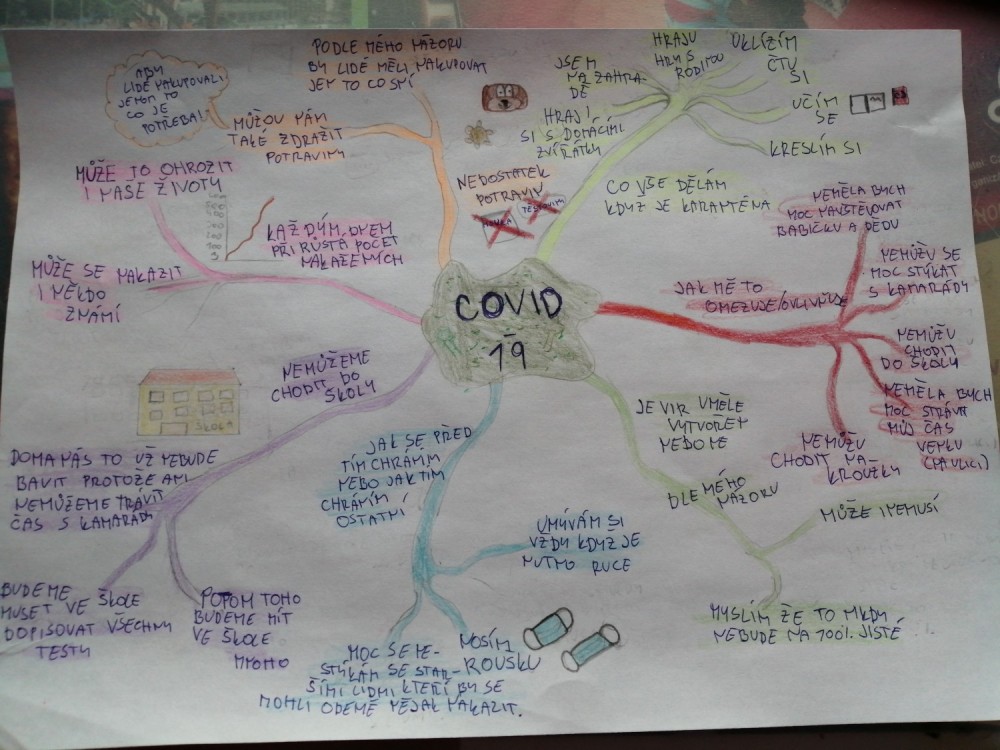 COVID
-
19
PODLE MÉHO NÁZORU
BY LIDÉ MĚLI NAKUPOVAT
JEN TO CO SMÍ
ABY
LIDÉ NAKUPOVALI
JENOM TO
CO JE
POTŘEBA!
MŮŽOU NÁM
TAKÉ ZDRAŽIT
POTRAVINY
NEDOSTATEK
POTRAVIN
MOUKA
TĚSTOVINY
JSEM
NA ZAHRA-
DĚ
HRAJU
HRY S
RODINOU
UKLÍZÍM
ČTU
SI
UČÍM
SE
KRESLÍM SI
HRAJÍ
SI S DOMÁCÍMI
ZVÍŘÁTKY
CO VŠE DĚLÁM
KDYŽ JE KARANTÉNA
MŮŽE TO OHROZIT
I NAŠE ŽIVOTY
KAŽDÝM DNEM
PŘI RŮSTÁ POČET
NAKAŽENÝCH
MŮŽE SE NAKAZIT
I NĚKDO
ZNÁMÍ
JAK MĚ TO
OMEZUJE/OVLIVŇUJE
NEMĚLA BYCH
MOC NAVŠTĚVOVAT
BABIČKU A DĚDU
NEMŮŽU SE
MOC STÝKAT
S KAMARÁDY
NEMŮŽU
CHODIT
DO ŠKOLY
NEMĚLA BYCH
MOC STRÁVIT
MŮJ ČAS
VENKU
(NA ULICI)
NEMŮŽU
CHODIT NA-
KROUŽKY
NEMŮŽEME
CHODIT DO
ŠKOLY
ŠKOLA
DOMA NÁS TO UŽ NEBUDE
BAVIT PROTOŽE ANI
NEMŮŽEME TRÁVIT
ČAS S KAMARÁDY
BUDEME
MUSET VE ŠKOLE
DOPISOVAT VŠECHNY
TESTY
POTOM TOHO
BUDEME MÍT
VE ŠKOLE
MNOHO
JAK SE PŘED
TÍM CHRÁNÍM
NEBO JAK TÍM
CHRÁNÍM
OSTATNÍ
UMÝVÁM SI
VŽDY KDYŽ JE
NUTNO RUCE
NOSÍM
ROUŠKU
MOC SE NE-
STÝKÁM SE STAR-
ŠÍMI LIDMI KTEŘÍ BY SE
MOHLI ODEMĚ NĚJAK NAKAZIT.
JE VIR UMĚLE
VYTVOŘEN
NEBO NE
DLE MÉHO
NÁZORU
MŮŽE I NEMUSÍ
MYSLÍM ŽE TO NIKDY
NEBUDE NA 100% JISTÉ